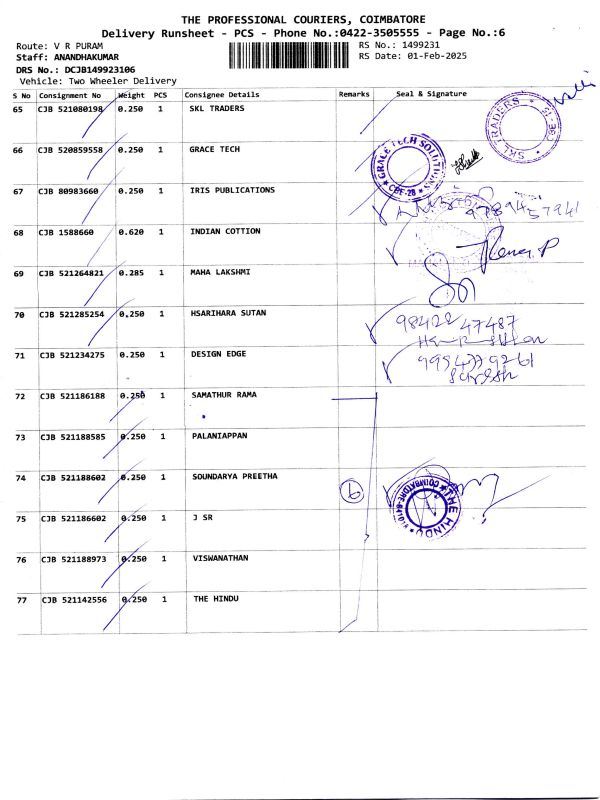 THE PROFESSIONAL COURIERS, COIMBATORE
Delivery Runsheet - PCS - Phone No.:0422-3505555 - Page No.:6
Route: V R PURAM RS No.: 1499231
Staff: ANANDHAKUMAR RS Date: 01-Feb-2025
DRS No.: DCJB149923106
Vehicle: Two Wheeler Delivery
S No Consignment No Weight PCS Consignee Details Remarks Seal & Signature
65 CJB 521080198 0.250 1 SKL TRADERS
SKL TRADERS
66 CJB 520859558 0.250 1 GRACE TECH
GRACE TECH SOLUTIONS
CBE-28
67 CJB 80983660 0.250 1 IRIS PUBLICATIONS
9789457941
68 CJB 1588660 0.620 1 INDIAN COTTION
69 CJB 521264821 0.285 1 MAHA LAKSHMI
70 CJB 521285254 0.250 1 HSARIHARA SUTAN
98422 47487
71 CJB 521234275 0.250 1 DESIGN EDGE
Suresh
72 CJB 521186188 0.250 1 SAMATHUR RAMA
73 CJB 521188585 0.250 1 PALANIAPPAN
74 CJB 521188602 0.250 1 SOUNDARYA PREETHA
6
THE HINDU
75 CJB 521186602 0.250 1 J SR
76 CJB 521188973 0.250 1 VISWANATHAN
77 CJB 521142556 0.250 1 THE HINDU